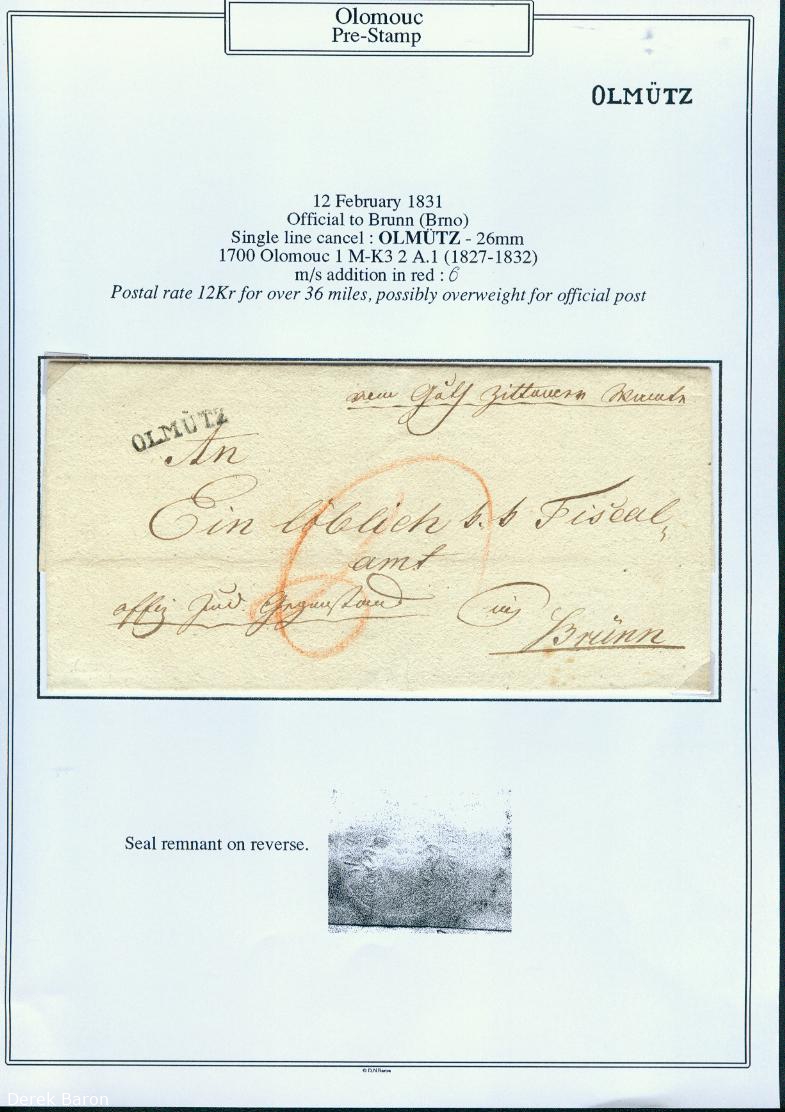 Olomouc
Pre-Stamp
OLMÜTZ
12 February 1831
Official to Brunn (Brno)
Single line cancel : OLMÜTZ - 26mm
1700 Olomouc 1 M-K3 2 A.1 (1827-1832)
m/s addition in red : 6
Postal rate 12Kr for over 36 miles, possibly overweight for official post
OLMÜTZ
An
Ein löblich k. k Fiscal,
amt
in
Brünn
6
Seal remnant on reverse.
© D.N.Baron
Derek Baron